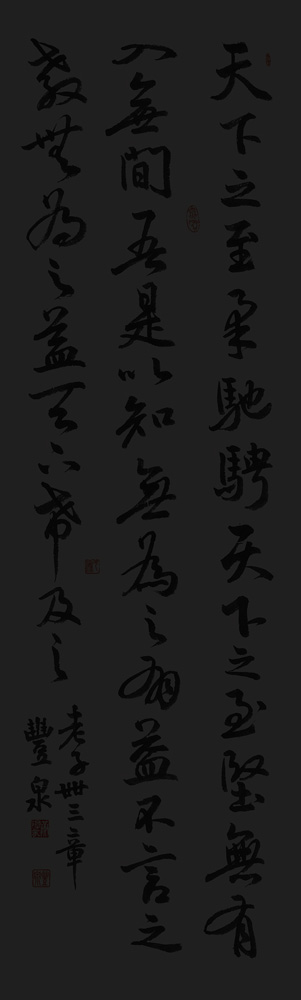 天下之至柔馳騁天下之至堅無有
入無間吾是以知無為之有益不言之
教無為之益天下希及之
老子卌三章
豐泉